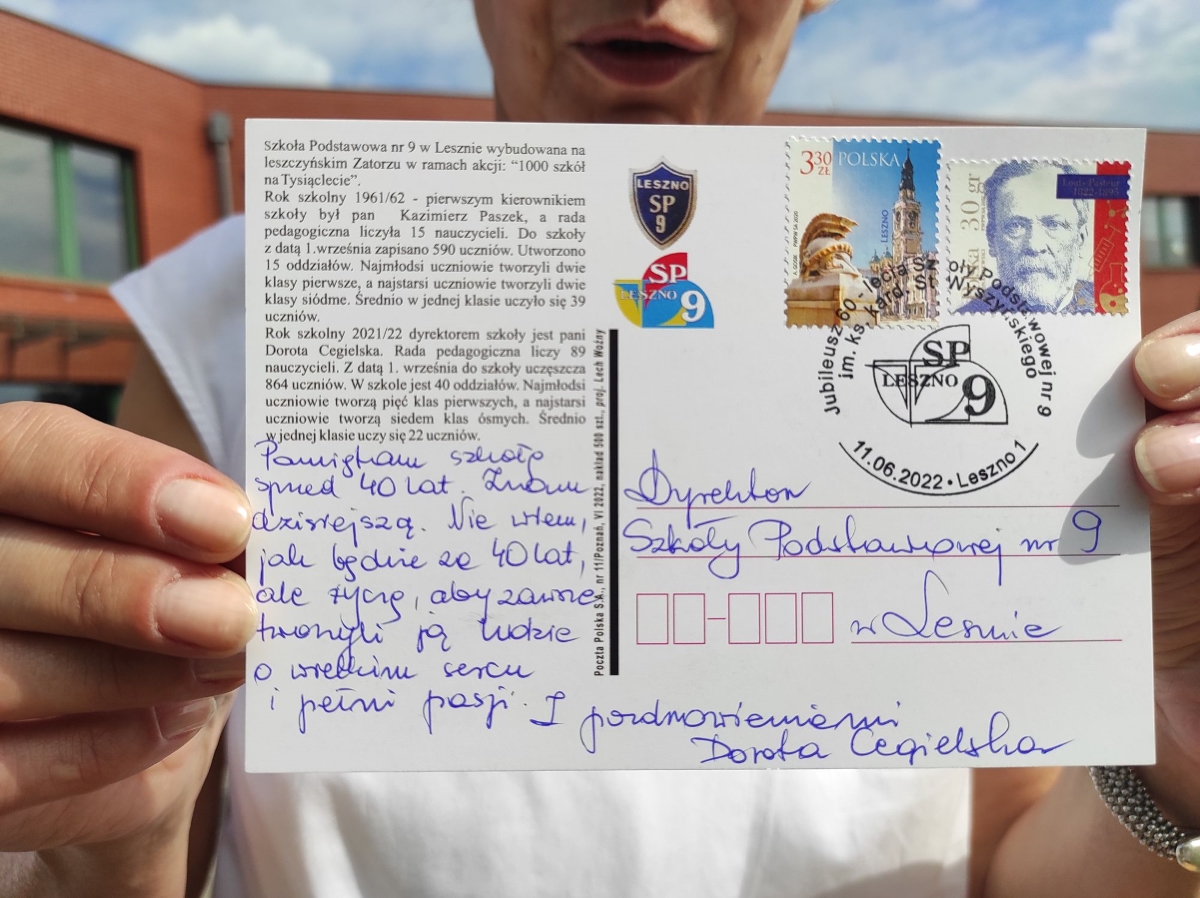 Szkoła Podstawowa nr 9 w Lesznie wybudowana na
leszczyńskim Zatorzu w ramach akcji: “1000 szkół
na Tysiąclecie”.
Rok szkolny 1961/62 - pierwszym kierownikiem
szkoły był pan Kazimierz Paszek, a rada
pedagogiczna liczyła 15 nauczycieli. Do szkoły
z datą 1.września zapisano 590 uczniów. Utworzono
15 oddziałów. Najmłodsi uczniowie tworzyli dwie
klasy pierwsze, a najstarsi uczniowie tworzyli dwie
klasy siódme. Średnio w jednej klasie uczyło się 39
uczniów.
Rok szkolny 2021/22 dyrektorem szkoły jest pani
Dorota Cegielska. Rada pedagogiczna liczy 89
nauczycieli. Z datą 1. września do szkoły uczęszcza
864 uczniów. W szkole jest 40 oddziałów. Najmłodsi
uczniowie tworzą pięć klas pierwszych, a najstarsi
uczniowie tworzą siedem klas ósmych. Średnio
w jednej klasie uczy się 22 uczniów.
Pamiętam szkołę
sprzed 40 lat. Znam
dzisiejszą. Nie wiem,
jak będzie za 40 lat,
ale życzę, aby zawsze
tworzyli ją ludzie
o wielkim sercu
i pełni pasji. Z pozdrowieniami
Dorota Cegielska
Poczta Polska S.A., nr 11/Poznań, VI 2022, nakład 500 szt., proj. Lech Woźny
LESZNO
SP
9
SP
LESZNO
9
3,30
ZŁ
POLSKA
LESZNO
30 gr
Louis Pasteur
1822-1895
Jubileusz 60 - lecia Szkoły Podstawowej nr 9
im. ks. kard. St. Wyszyńskiego
SP
LESZNO
9
11.06.2022 • Leszno 1
Dyrektor
Szkoły Podstawowej nr 9
w Lesznie